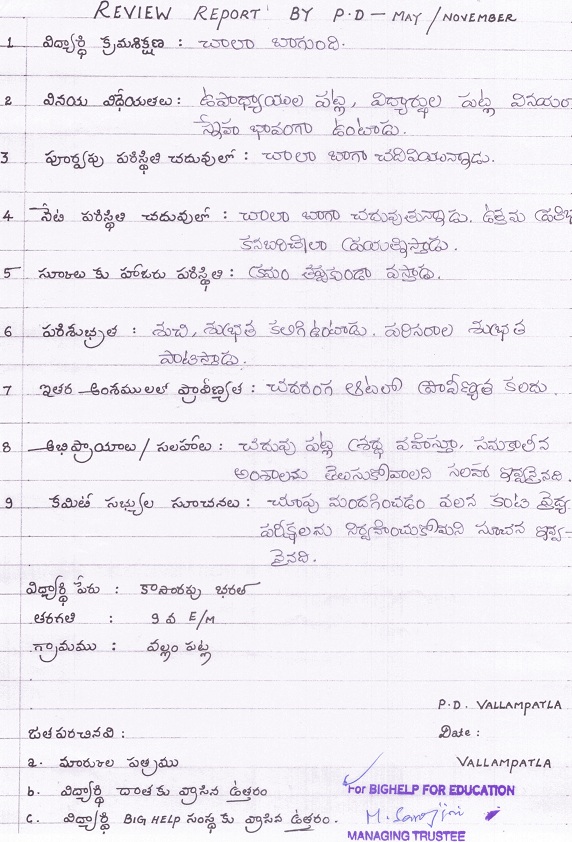 REVIEW REPORT BY P.D - MAY/NOVEMBER
1 విద్యార్థి క్రమశిక్షణ : చాలా బాగుంది.
2 వినయ విధేయతలు: ఉపాధ్యాయుల పట్ల, విద్యార్థుల పట్ల వినయం
స్నేహ భావంగా ఉంటాడు.
3 పూర్వపు పరిస్థితి చదువులో : చాలా బాగా చదివియున్నాడు.
4 నేటి పరిస్థితి చదువులో : చాలా బాగా చదువుతున్నాడు. ఉత్తమ ప్రతిభ
కనబరిచేలా ప్రయత్నిస్తాడు.
5 స్కూలు కు హాజరు పరిస్థితి : క్రమం తప్పకుండా వస్తాడు.
6 పరిశుభ్రత : శుచి, శుభ్రత కలిగి ఉంటాడు. పరిసరాల శుభ్రత
పాటిస్తాడు.
7 ఇతర అంశములలో ప్రావీణ్యత : చదరంగ ఆటలో ప్రావీణ్యత కలదు.
8 అభిప్రాయాలు / సలహాలు: చదువు పట్ల శ్రద్ధ వహిస్తూ, సమకాలీన
అంశాలను తెలుసుకోవాలని సలహా ఇవ్వనైనది.
9 కమిటీ సభ్యుల సూచనలు: చూపు మందగించడం వలన కంటి వైద్య
పరీక్షలను నిర్వహించుకోమని సూచన ఇవ్వ-
నైనది.
విద్యార్థి పేరు : భరత్
తరగతి : 9 వ E/M
గ్రామము : వల్లం పట్ల
P.D. VALLAMPATLA
జతపరచినవి : Date :
a. మార్కుల పత్రము VALLAMPATLA
b. విద్యార్థి దాతకు వ్రాసిన ఉత్తరం For BIGHELP FOR EDUCATION
c. విద్యార్థి BIG HELP సంస్థ కు వ్రాసిన ఉత్తరం. M. Sarojini
MANAGING TRUSTEE